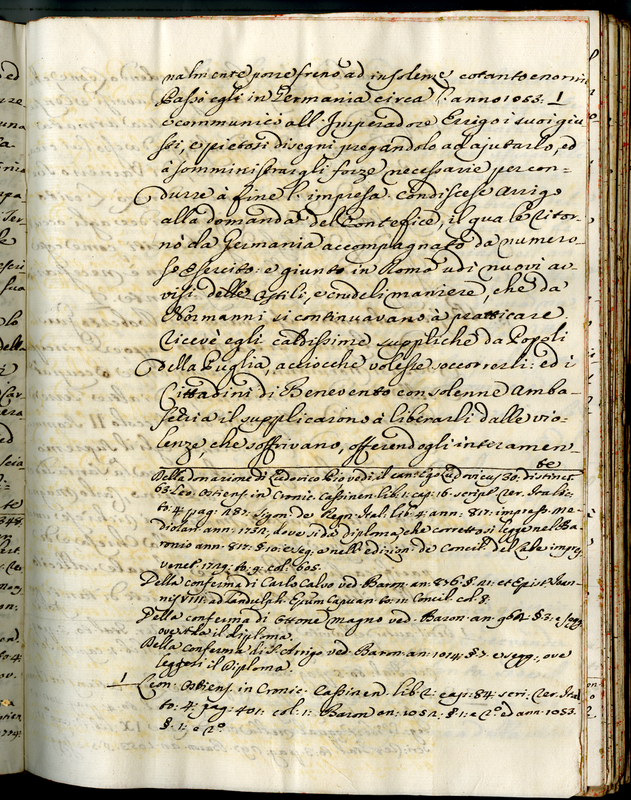 nalmente porre freno ad insolenze cotanto enormi
Passò egli in Germania circa l'anno 1053: 1
e communicò all'Imperadore Errigo i suoi giu
sti, e pietosi disegni pregandolo ad ajutarlo, ed
à somministrargli forze necessarie per con=
durre à fine l'impresa condiscese Arrigo
alla domanda del Pontefice, il quale ritor=
nò da Germania accompagnato da numero=
so Esercito: e giunto in Roma udì nuovi av=
visi delle ostili, e crudeli maniere, che da
Normanni si continuavano à pratticare
ricevè egli caldissime suppliche da Popoli
della Puglia, acciocche volesse soccorrerli: ed i
Cittadini di Benevento con solenne Amba=
sceria il supplicarono à liberarli dalle vio=
lenze, che soffrivano, offerendogli interamen=
te
Della donazione di Ludovico Pio vedi il can: Ego Ludovicus 30: distinct:
63. Leo Ostiens: in Cronic: Cassinen: lib: 1: cap: 16: script: rer: Ital:
to: 4 pag: Sigon: de Regn: Ital: lib: 4: ann: 817: impress: me=
diolan: ann: 1732, dove si dà diploma, che corretto si legge nel Ba=
ronio ann: 817: §: 10: e seg: e nell'edizion: de Concil: del Labe impr:
venet: 1729: to: 9: col: 605.
Della conferma di Carlo Calvo ved: Baron: an: 876: §: et Epist: Ioan=
nis VIII: ad Landulph: Epum Capuan: to: in Concil: col: 8:
Della conferma di Ottone Magno ved: Baron: an: 962: §: 3: e segg:
ove stà il diploma.
Della conferma di S. Arrigo ved: Baron: an: 1014: §: 7: e segg:, ove
leggesi il Diploma.
1 Leon: Ostiens: in Cronic: Cassinen: lib: 2: cap: 84: scri: rer: Ital:
to: 4: pag: 401: col: 1: Baron: an: 1052: §: 1: e 2º ed ann: 1053.
§: 1: e 2º